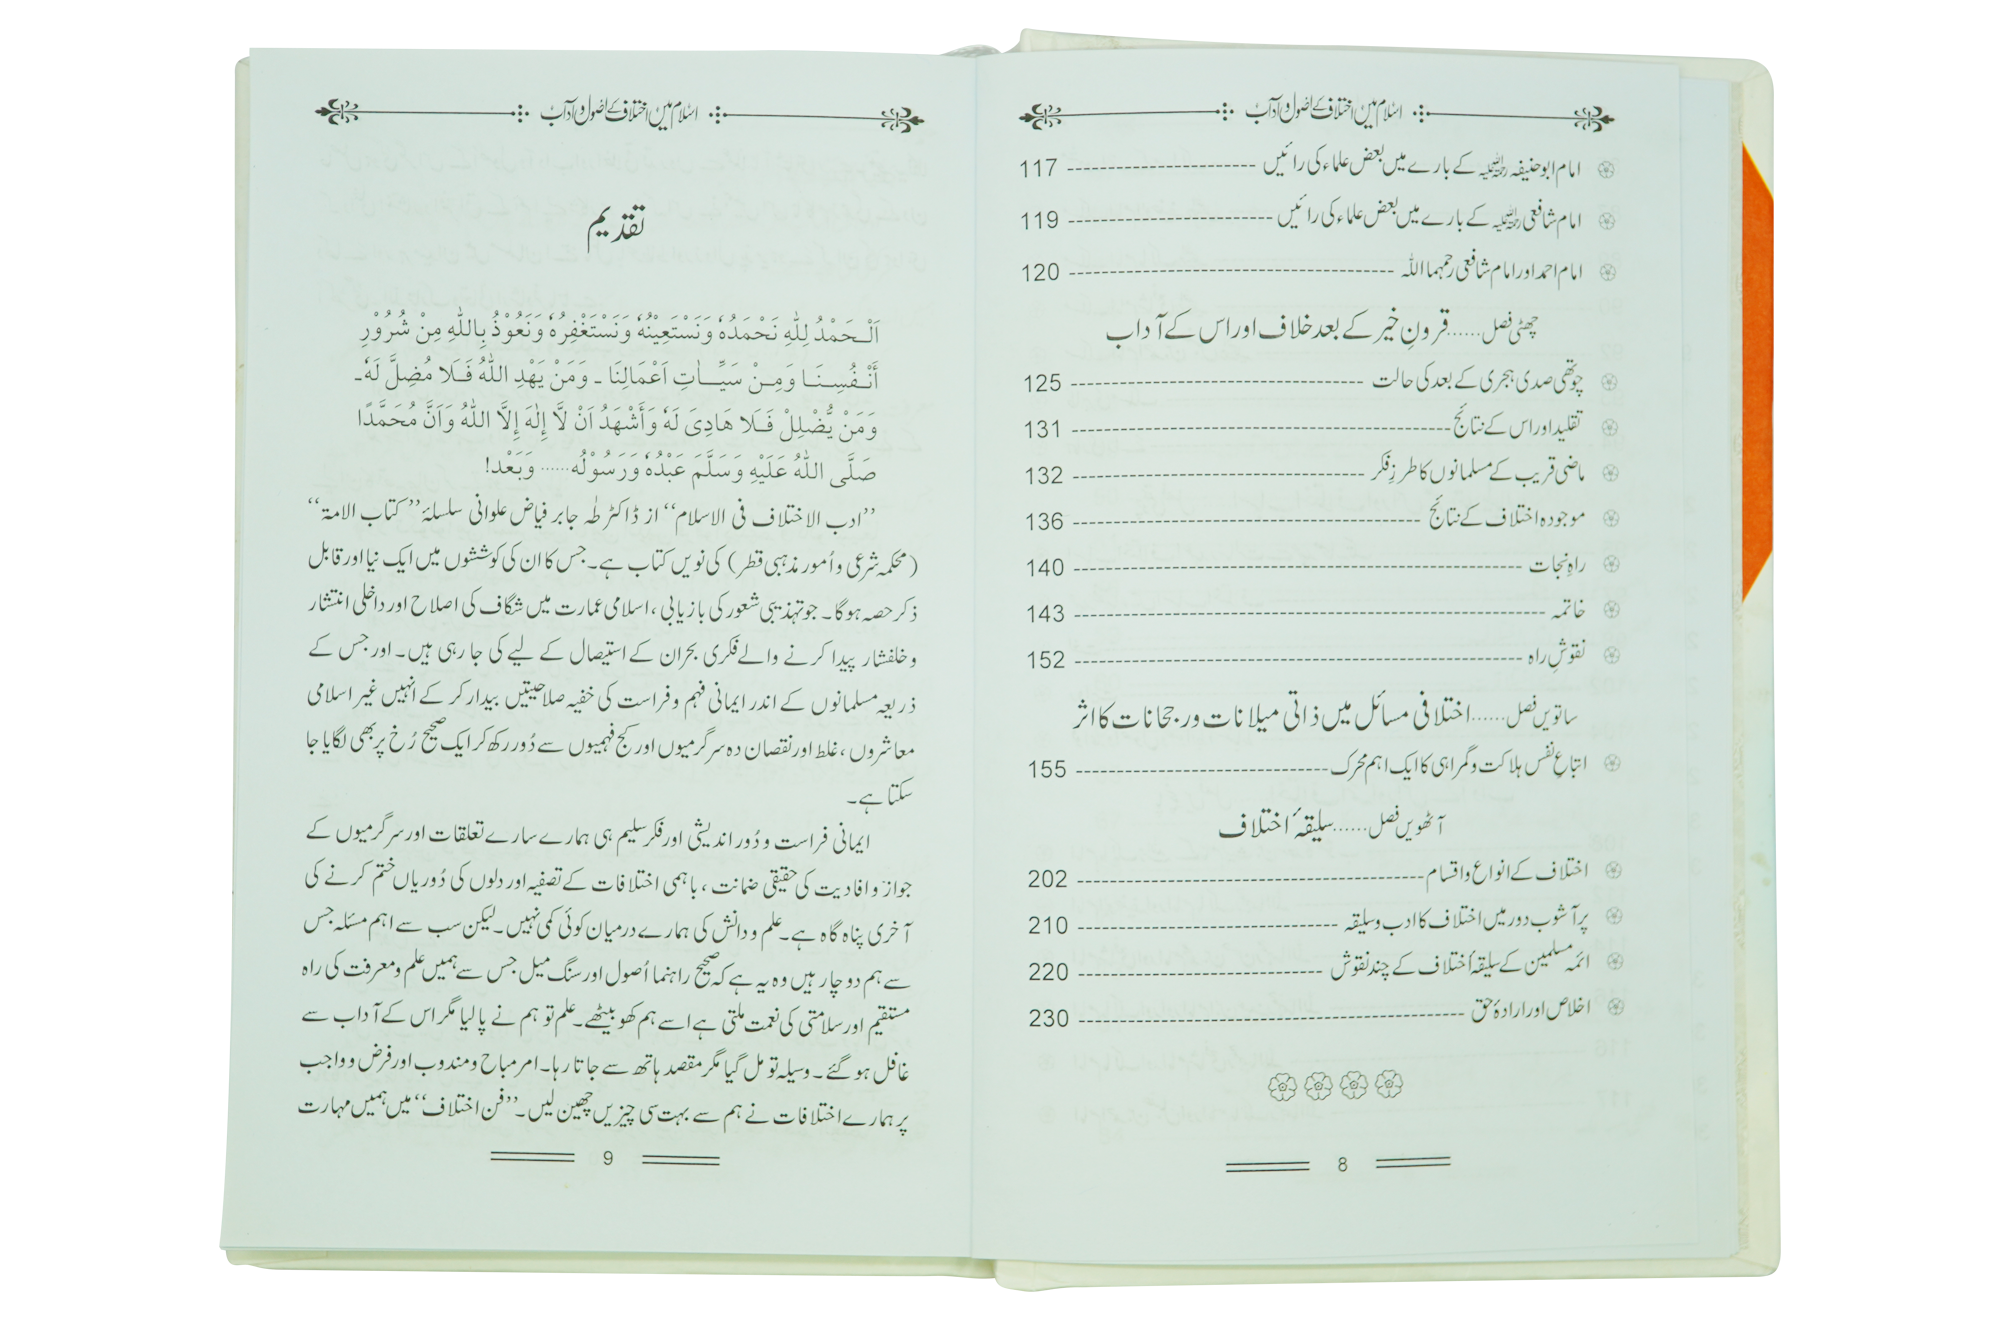 اسلام میں اختلاف کے اصول و آداب
امام ابوحنیفہ رحمۃ اللہ علیہ کے بارے میں بعض علماء کی رائیں ---------- 117
امام شافعی رحمۃ اللہ علیہ کے بارے میں بعض علماء کی رائیں ---------- 119
امام احمد اور امام شافعی رحمہما اللہ ---------- 120
چھٹی فصل......قرونِ خیر کے بعد خلاف اور اس کے آداب
چوتھی صدی ہجری کے بعد کی حالت ---------- 125
تقلید اور اس کے نتائج ---------- 131
ماضی قریب کے مسلمانوں کا طرزِ فکر ---------- 132
موجودہ اختلاف کے نتائج ---------- 136
راہِ نجات ---------- 140
خاتمہ ---------- 143
نقوشِ راہ ---------- 152
ساتویں فصل......اختلافی مسائل میں ذاتی میلانات و رجحانات کا اثر
اتباعِ نفس ہلاکت و گمراہی کا ایک اہم محرک ---------- 155
آٹھویں فصل......سلیقۂ اختلاف
اختلاف کے انواع و اقسام ---------- 202
پرآشوب دور میں اختلاف کا ادب و سلیقہ ---------- 210
ائمہ مسلمین کے سلیقۂ اختلاف کے چند نقوش ---------- 220
اخلاص اور ارادۂ حق ---------- 230
8
اسلام میں اختلاف کے اصول و آداب
تقدیم
اَلْـحَمْدُ لِلّٰہِ نَحْمَدُہٗ وَنَسْتَعِیْنُہٗ وَنَسْتَغْفِرُہٗ وَنَعُوْذُ بِاللّٰہِ مِنْ شُرُوْرِ
أَنْـفُسِـنَـا وَمِـنْ سَیِّـاٰتِ اَعْمَالِنَا ۔ وَمَنْ یَھْدِ اللّٰہُ فَـلَا مُضِلَّ لَہٗ۔
وَمَنْ یُّضْلِلْ فَـلَا ھَادِیَ لَہٗ وَأَشْھَدُ اَنْ لَّا إِلٰہَ إِلَّا اللّٰہُ وَاَنَّ مُحَمَّدًا
صَلَّی اللّٰہُ عَلَیْہِ وَسَلَّمَ عَبْدُہٗ وَرَسُوْلُہ...... وَبَعْد!
’’ادب الاختلاف فی الاسلام‘‘ از ڈاکٹر طٰہ جابر فیاض علوانی سلسلۂ ’’کتاب الامۃ‘‘
(محکمہ شرعی و اُمور مذہبی قطر) کی نویں کتاب ہے۔ جس کا ان کی کوششوں میں ایک نیا اور قابل
ذکر حصہ ہوگا۔ جو تہذیبی شعور کی بازیابی، اسلامی عمارت میں شگاف کی اصلاح اور داخلی انتشار
و خلفشار پیدا کرنے والے فکری بحران کے استیصال کے لیے کی جا رہی ہیں۔ اور جس کے
ذریعہ مسلمانوں کے اندر ایمانی فہم و فراست کی خفیہ صلاحیتیں بیدار کر کے انہیں غیر اسلامی
معاشروں، غلط اور نقصان دہ سرگرمیوں اور کج فہمیوں سے دُور رکھ کر ایک صحیح رُخ پر بھی لگایا جا
سکتا ہے۔
ایمانی فراست و دُور اندیشی اور فکر سلیم ہی ہمارے سارے تعلقات اور سرگرمیوں کے
جواز و افادیت کی حقیقی ضمانت، باہمی اختلافات کے تصفیہ اور دلوں کی دُوریاں ختم کرنے کی
آخری پناہ گاہ ہے۔ علم و دانش کی ہمارے درمیان کوئی کمی نہیں۔ لیکن سب سے اہم مسئلہ جس
سے ہم دو چار ہیں وہ یہ ہے کہ صحیح راہنما اُصول اور سنگ میل جس سے ہمیں علم و معرفت کی راہ
مستقیم اور سلامتی کی نعمت ملتی ہے اسے ہم کھو بیٹھے۔ علم تو ہم نے پا لیا مگر اس کے آداب سے
غافل ہو گئے۔ وسیلہ تو مل گیا مگر مقصد ہاتھ سے جاتا رہا۔ امر مباح و مندوب اور فرض و واجب
پر ہمارے اختلافات نے ہم سے بہت سی چیزیں چھین لیں۔ ’’فن اختلاف‘‘ میں ہمیں مہارت
9